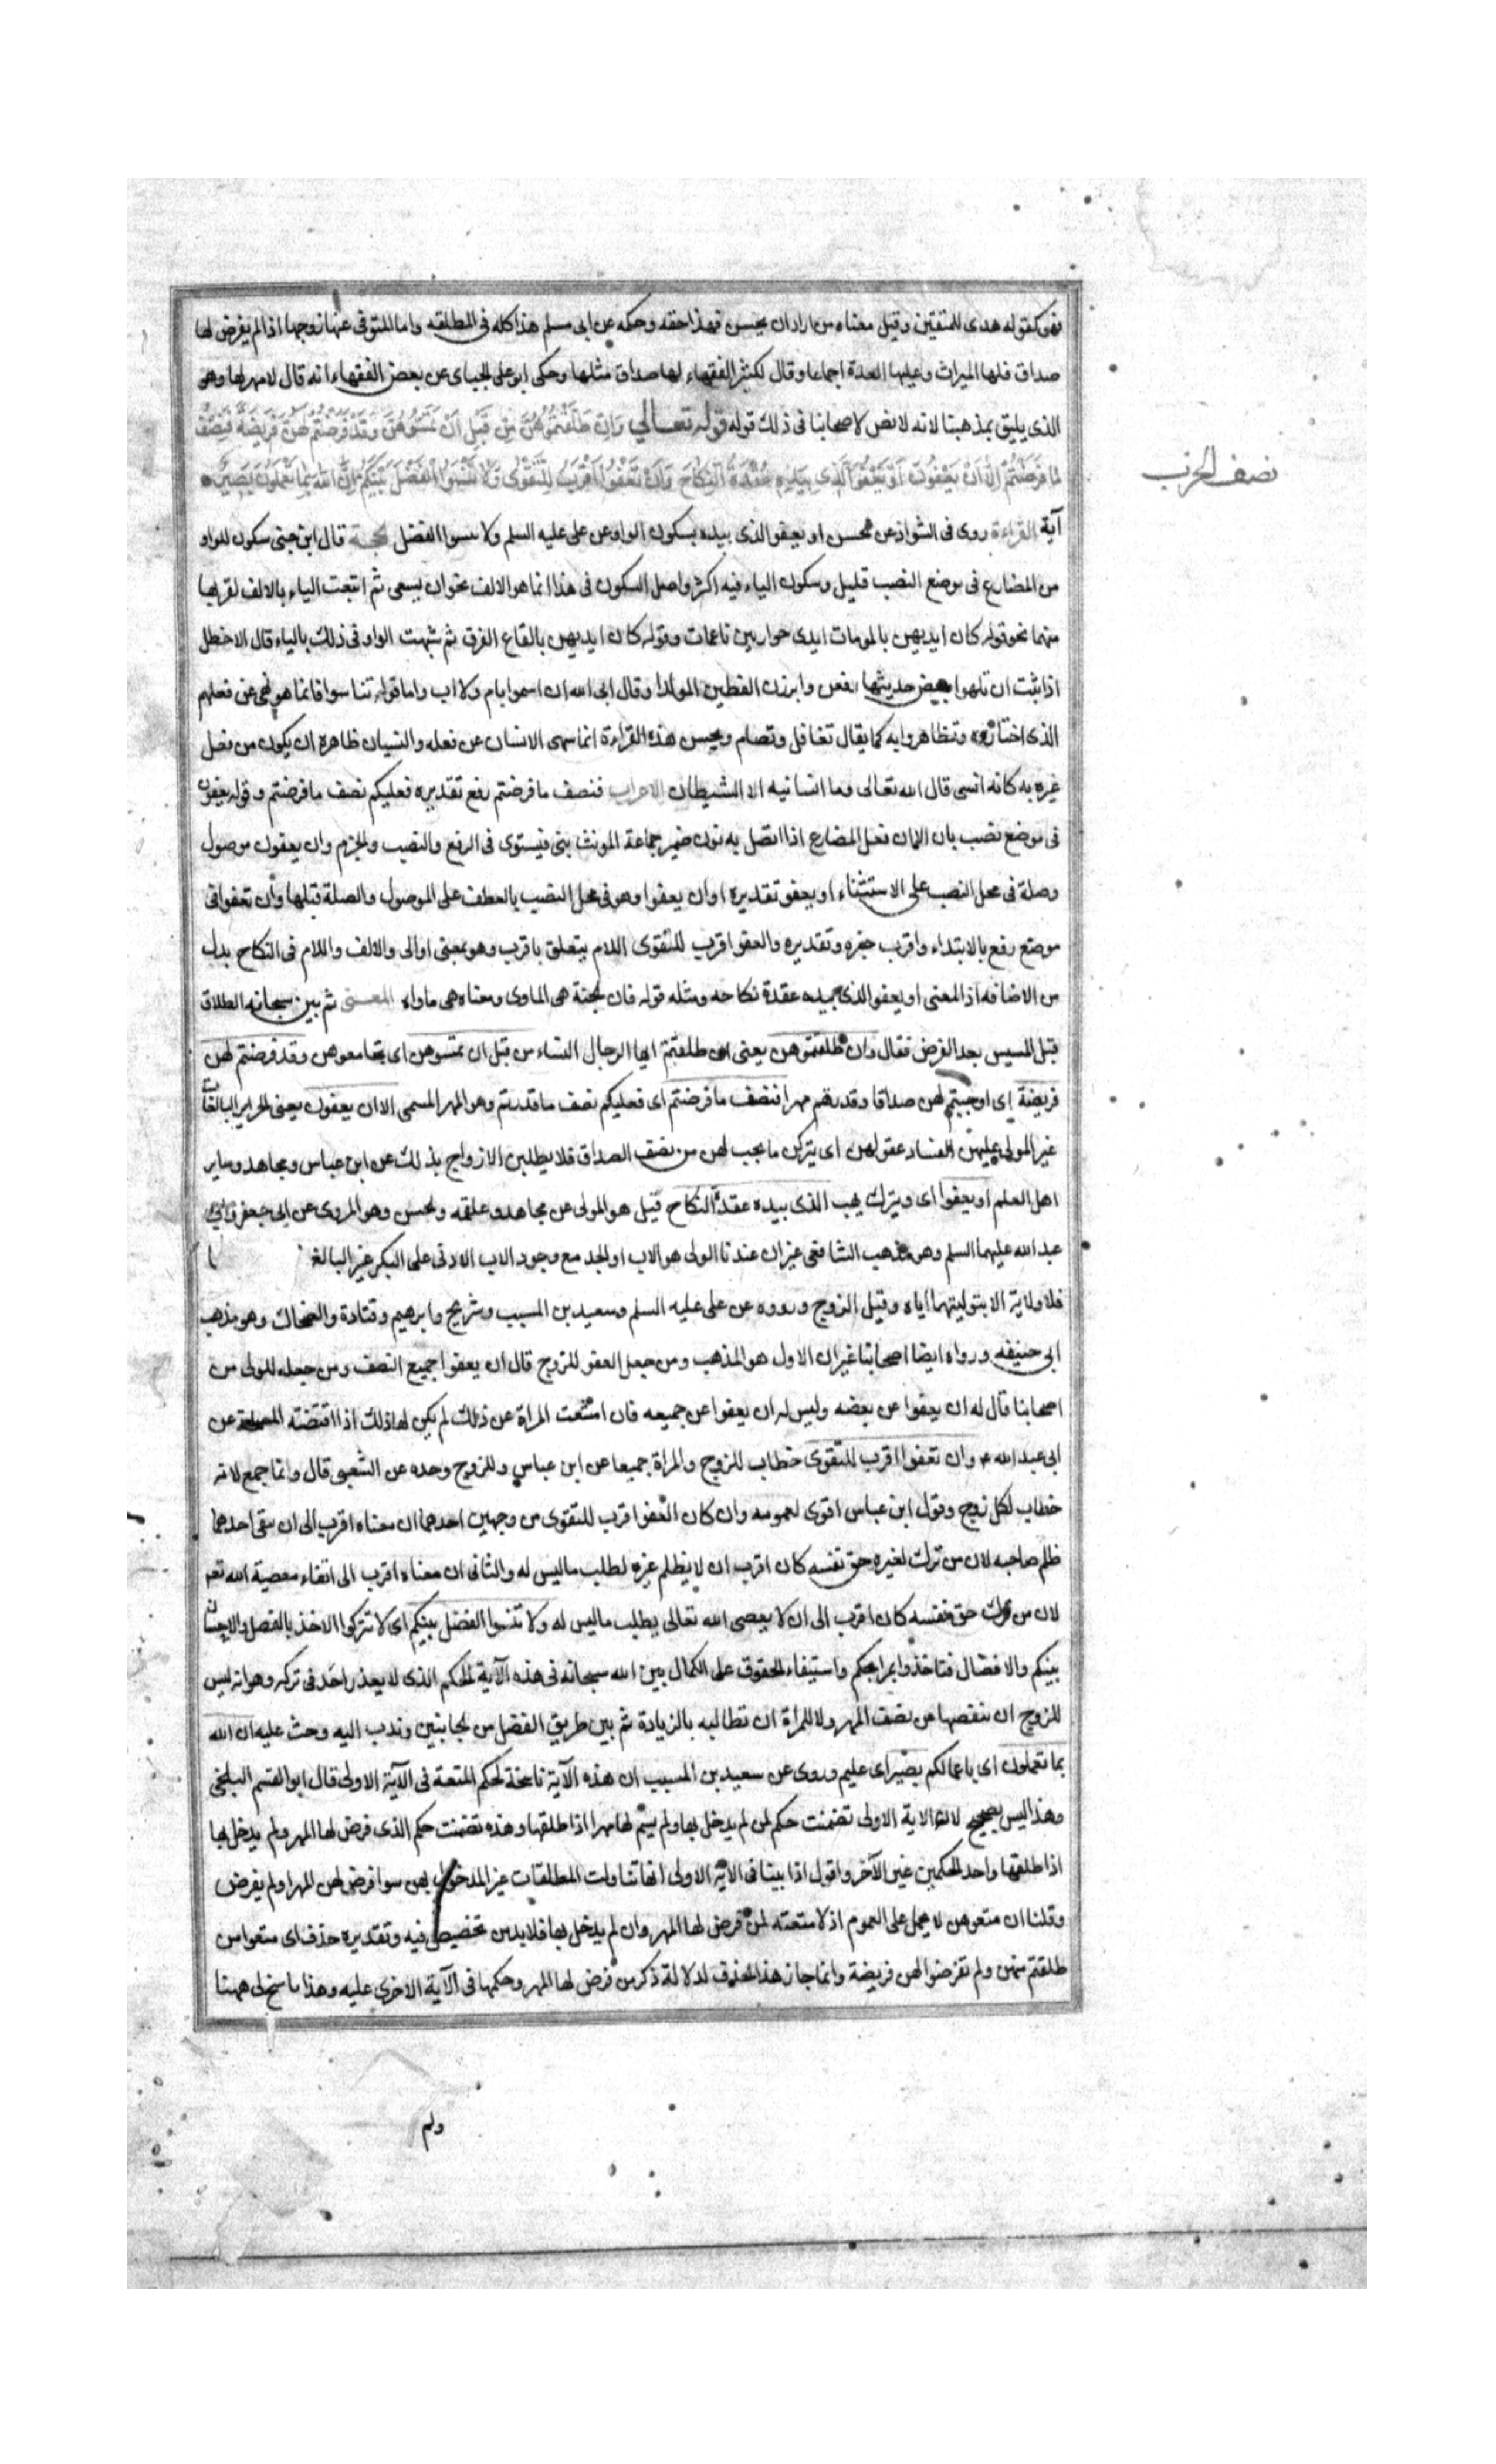 فهو كقوله هدى للمتقين وقيل معناه من اراد ان يحسن فهذا حقه وحكمه عن ابى مسلم هذا كله فى المطلقه واما المتوفى عنها زوجها اذا لم يفرض لها
صداق فلها الميراث وعليها العدة اجماعا وقال لكثر الفقهاء لها صداق مثلها وحكى ابو على الجباى عن بعض الفقهاء انه قال لا مهر لها وهو
الذى يليق بمذهبنا لانه لا نص لاصحابنا فى ذلك قوله قوله تعالى وَاِنْ طَلَّقْتُمُوهُنَّ مِنْ قَبْلِ اَنْ تَمَسُّوهُنَّ وَقَدْ فَرَضْتُمْ لَهُنَّ فَرِيضَةً فَنِصْفُ
نصف الحزب
مَا فَرَضْتُمْ اِلَّا اَنْ يَعْفُونَ اَوْ يَعْفُوَا الَّذِى بِيَدِهِ عُقْدَةُ النِّكَاحِ وَاَنْ تَعْفُوا اَقْرَبُ لِلتَّقْوٰى وَلَا تَنْسَوُا الْفَضْلَ بَيْنَكُمْ اِنَّ اللّٰهَ بِمَا تَعْمَلُونَ بَصِيرٌ
آية القراءة روى فى الشواذ عن الحسن او يعفو الذى بيده بسكون الواو عن على عليه السلم ولا تنسوا الفضل الحجة قال ابن جنى سكون الواو
من المضارع فى موضع النصب قليل وسكون الياء فيه اكثر واصل السكون فى هذا انما هو الالف نحو ان يسعى ثم اتبعت الياء بالالف لقربها
منهما نحو قوله كان ايديهن بالموماة ايدى جوار بين ناعمات وقوله كان ايديهن بالقاع القرق ثم شبهت الواو فى ذلك بالياء قال الاخطل
اذا شئت ان تلهوا ببعض حديثها رفعن وانزلن القطين المولدا وقال ابى الله ان اسموا بام ولا اب واما قوله تناسوا فانما هو نهى عن فعلهم
الذى اختاروه وتظاهروا به كما يقال تغافل وتصام ويحسن هذه القراءة انما سهى الانسان عن فعله والنسيان ظاهره ان يكون من فعل
غيره به كانه انسى قال الله تعالى وما انسانيه الا الشيطان الاعراب فنصف ما فرضتم رفع تقديره فعليكم نصف ما فرضتم وقوله يعفون
فى موضع نصب بان الا ان فعل المضارع اذا اتصل به نون ضمير جماعة المونث بنى فيستوى فى الرفع والنصب والجزم وان يعفون موصول
وصلة فى محل النصب على الاستثناء او يعفو تقديره او ان يعفوا وهو فى محل النصب بالعطف على الموصول والصلة قبلها وان تعفوا فى
موضع رفع بالابتداء واقرب خبره وتقديره والعفو اقرب للتقوى اللام يتعلق باقرب وهو بمعنى اوالى والالف واللام فى النكاح بدل
من الاضافه اذ المعنى او يعفو الذى بيده عقدة نكاحه ومثله قوله فان الجنة هى الماوى ومعناه هى ماواه المعنى ثم بين سبحانه الطلاق
قبل المسيس بعد الفرض فقال وان طلقتموهن يعنى ان طلقتم ايها الرجال النساء من قبل ان تمسوهن اى تجامعوهن وقد فرضتم لهن
فريضة اى اوجبتم لهن صداقا وقدرتم مهرا فنصف ما فرضتم اى فعليكم نصف ما قدرتم وهو المهر المسمى الا ان يعفون يعنى الحراير البالغات
غير المولى عليهن لفساد عقولهن اى يتركن ما يجب لهن من نصف الصداق فلا يطلبن الازواج بذلك عن ابن عباس ومجاهد وساير
اهل العلم او يعفوا اى ويترك يهب الذى بيده عقدة النكاح قيل هو المولى عن مجاهد وعلقمه والحسن وهو المروى عن ابى جعفر وابى
عبد الله عليهما السلم وهو مذهب الشافعى غير ان عندنا الولى هو الاب او الجد مع وجود الاب الادنى على البكر غير البالغ
فلا ولاية الا بتوليتهما اياه وقيل الزوج ورووه عن على عليه السلم وسعيد بن المسيب وشريح وابرهيم وقتادة والضحاك وهو مذهب
ابى حنيفه ورواه ايضا اصحابنا غير ان الاول هو المذهب ومن جعل العفو للزوج قال ان يعفوا جميع النصف ومن جعله للولى من
اصحابنا قال له ان يعفوا عن بعضه وليس له ان يعفوا عن جميعه فان امتنعت المراة عن ذلك لم يكن لها ذلك اذا اقتضته المصلحة عن
ابى عبد الله ع وان تعفوا اقرب للتقوى خطاب للزوج والمراة جميعا عن ابن عباس وللزوج وحده عن الشعبى قال وانما جمع لانه
خطاب لكل زوج وقول ابن عباس اقوى لعمومه وان كان العفو اقرب للتقوى من وجهين احدهما ان معناه اقرب الى ان يتقى احدهما
ظلم صاحبه لان من ترك لغيره حق نفسه كان اقرب ان لا يظلم غيره لطلب ما ليس له والثانى ان معناه اقرب الى اتقاء معصية الله تعم
لان من ترك حق نفسه كان اقرب الى ان لا يعصى الله تعالى بطلب ما ليس له ولا تنسوا الفضل بينكم اى لا تتركوا الاخذ بالفضل والاحسان
بينكم والافضال فتاخذوا بمراجكم واستيفاء الحقوق على الكمال بين الله سبحانه فى هذه الآية الحكم الذى لا يعذر احد فى تركه وهو انه ليس
للزوج ان ينقصها من نصف المهر ولا للمراة ان تطالبه بالزيادة ثم بين طريق الفضل من الجانبين وندب اليه وحث عليه ان الله
بما تعملون اى باعمالكم بصير اى عليم وروى عن سعيد بن المسيب ان هذه الآية ناسخة لحكم المتعة فى الآية الاولى قال ابو القسم البلخى
وهذا ليس بصحيح لان الاية الاولى تضمنت حكم لمن لم يدخل بها ولم يسم لها مهرا اذا طلقها وهذه تضمنت حكم الذى فرض لها المهر ولم يدخل بها
اذا طلقها واحد الحكمين غير الآخر واقول اذا بينا فى الاية الاولى انها تناولت المطلقات غير المدخول بهن سوا فرض لهن المهر او لم يفرض
وقلنا ان متعوهن لا يحمل على العموم اذ لا متعته لمن فرض لها المهر وان لم يدخل بها فلا بد من تخصيص فيه وتقديره حذف اى متعوا من
طلقتم منهن ولم تفرضوا لهن فريضة وانما جاز هذا الحذف لدلالة ذكر من فرض لها المهر وحكمها فى الآية الاخرى عليه وهذا ما سنح لى ههنا
ولم